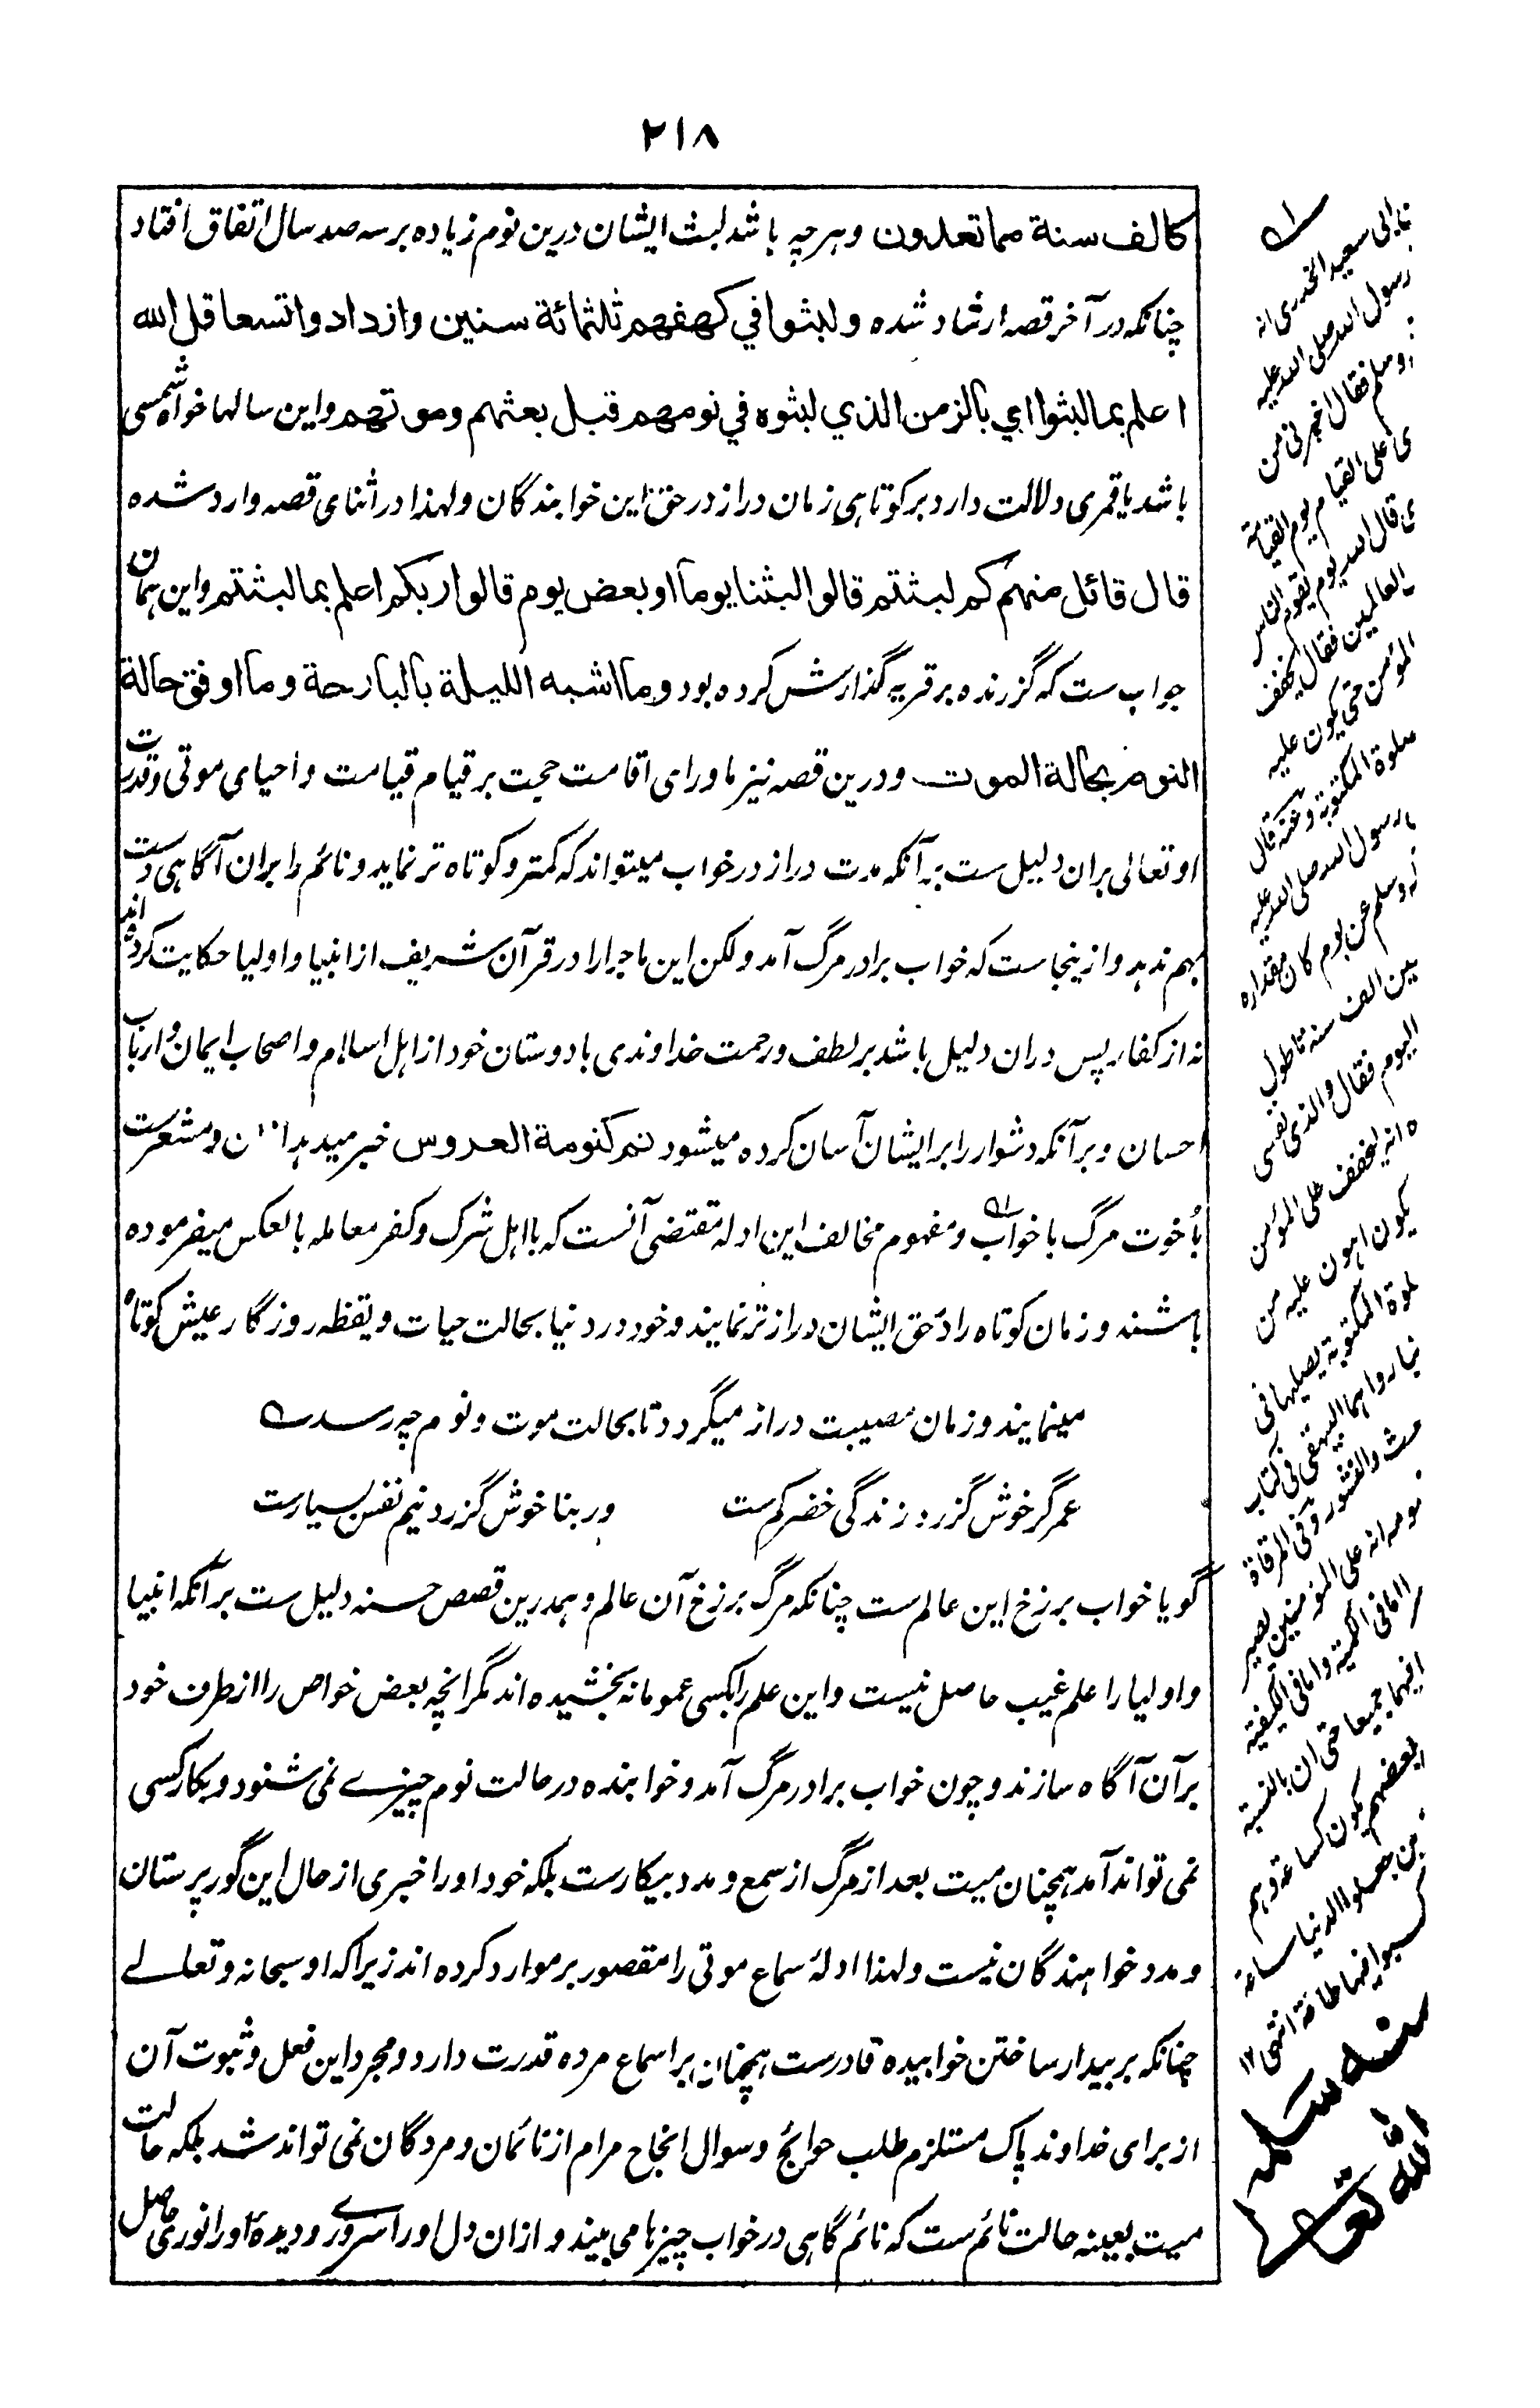 ٢١٨
كالف سنة مما تعدون وهرچه باشد لبث ایشان درین نوم زیاده بر سه صد سال اتفاق افتاد
چنانکه در آخر قصه ارشاد شده ولبثوا في كهفهم ثلثمائة سنين وازدادوا تسعا قل الله
اعلم بما لبثوا اي بالزمن الذي لبثوه في نومهم قبل بعثهم وموتهم واین سالها خواه شمسی
باشد یا قمری دلالت دارد بر کوتاهی زمان دراز در حق این خوابندگان ولهذا در اثنای قصه وارد شده
قال قائل منهم كم لبثتم قالوا لبثنا يوما او بعض يوم قالوا ربكم اعلم بما لبثتم واین همان
جواب ست که گزرنده بر قریه گذارش کرده بود وما اشبه الليلة بالبارحة وما اوفق حالة
النوم بحالة الموت ودرین قصه نیز ماورای اقامت حجت بر قیام قیامت و احیای موتی وقدرت
او تعالی بران دلیل ست بر آنکه مدت دراز در خواب میتواند که کمتر و کوتاه تر نماید و نائم را بران آگاهی دست
بهم ندهد و ازینجاست که خواب برادر مرگ آمد ولکن این ماجرا را در قرآن شریف از انبیا و اولیا حکایت کرده اند
نه از کفار پس دران دلیل باشد بر لطف و رحمت خداوندی با دوستان خود از اهل اسلام و اصحاب ایمان و ارباب
احسان و بر آنکه دشوار را بر ایشان آسان کرده میشود نم كنومة العروس خبر میدهد ازان و مشعرست
باُخوت مرگ با خواب و مفهوم مخالف این ادله مقتضی آنست که با اهل شرک و کفر معامله بالعکس میفرموده
باشند و زمان کوتاه را در حق ایشان دراز تر نمایند و خود در دنیا بحالت حیات و یقظه روزگار عیش کوتاه
مینمایند و زمان مصیبت دراز میگردد تا بحالت موت و نوم چه رسد
عمر گر خوش گزرد زندگی خضر کم ست ور بنا خوش گزرد نیم نفس بسیارست
گویا خواب برزخ این عالم ست چنانکه مرگ برزخ آن عالم و همدرین قصص حسنه دلیل ست بر آنکه انبیا
و اولیا را علم غیب حاصل نیست و این علم را بکسی عموما نه بخشیده اند مگر انچه بعض خواص را از طرف خود
بر آن آگاه سازند و چون خواب برادر مرگ آمد و خوابنده در حالت نوم چیزے نمی شنود و بکار کسی
نمی تواند آمد همچنان میت بعد از مرگ از سمع و مدد بیکارست بلکه خود او را خبری از حال این گور پرستان
و مدد خواهندگان نیست ولهذا ادلهٔ سماع موتی را مقصور بر موارد کرده اند زیرا که او سبحانه و تعالے
چنانکه بر بیدار ساختن خوابیده قادرست همچنان بر اسماع مرده قدرت دارد و مجرد این فعل و ثبوت آن
از برای خداوند پاک مستلزم طلب حوائج و سوال انجاح مرام از نائمان و مردگان نمی تواند شد بلکه حالت
میت بعینه حالت نائم ست که نائم گاهی در خواب چیزها می بیند و ازان دل او را سرورے و دیدهٔ او را نوری حاصل
سعيد الخدري انه
رسول الله صلى الله عليه
وسلم فقال اخبرني من
على القيام يوم القيامة
قال الله يوم يقوم الناس
العالمين فقال يخفف
المؤمن حتى يكون عليه
المكتوبة وعنه قال
رسول الله صلى الله عليه
وسلم عن يوم كان مقداره
الف سنة ما طول
اليوم فقال والذي نفسي
انه ليخفف على المؤمن
يكون اهون عليه من
المكتوبة يصليها في
رواهما البيهقي في كتاب
والنشور وفي المرقاة
انه على المؤمنين يصير
اما في الكمية واما في الكيفية
فيهما جميعا حتى ان بالنسبة
لبعضهم يكون كساعة وهم
جعلوا الدنيا ساعة
فيها طاعة انتهى ١٢
منه سلمه
الله تعالى